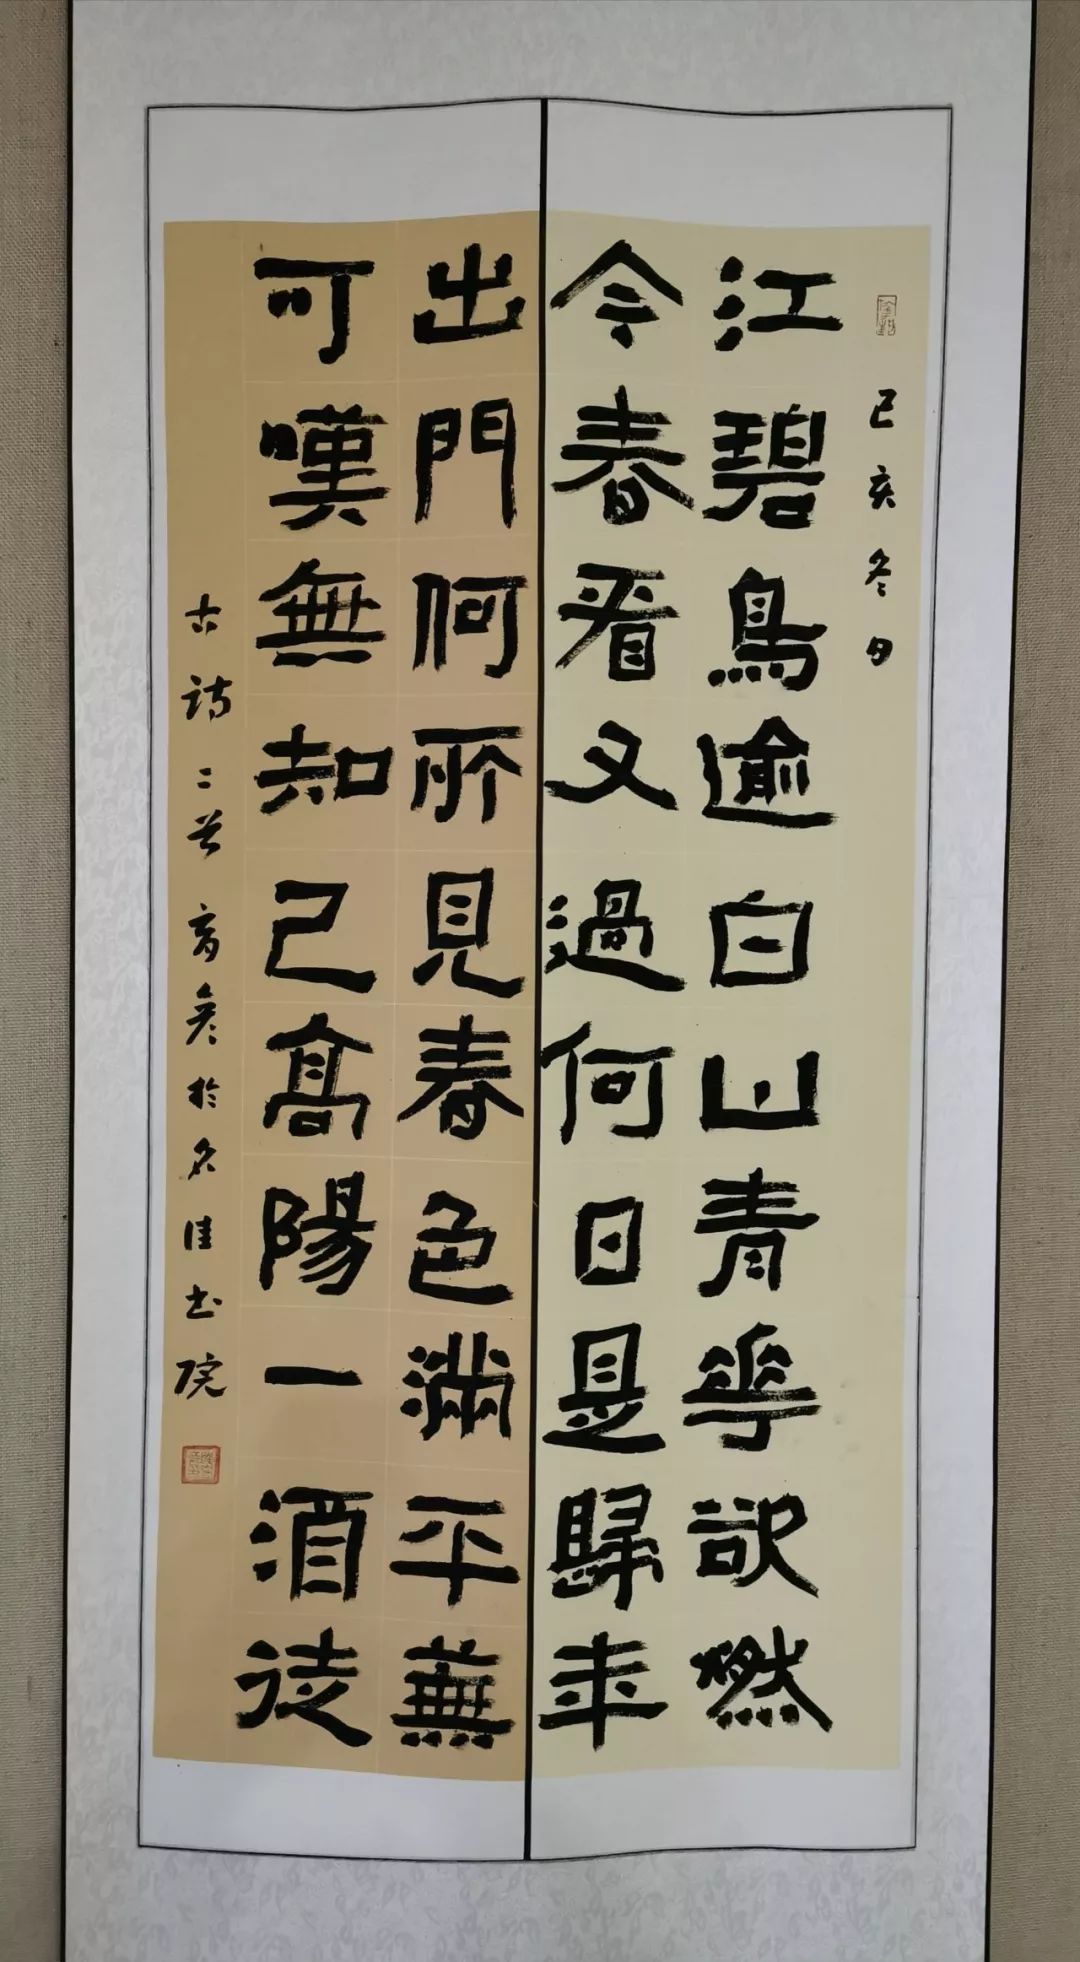 己亥冬日
江碧鳥逾白山青花欲燃
今春看又過何日是歸年
出門何所見春色滿平蕪
可嘆無知己高陽一酒徒
古詩二首 彦於名佳书院